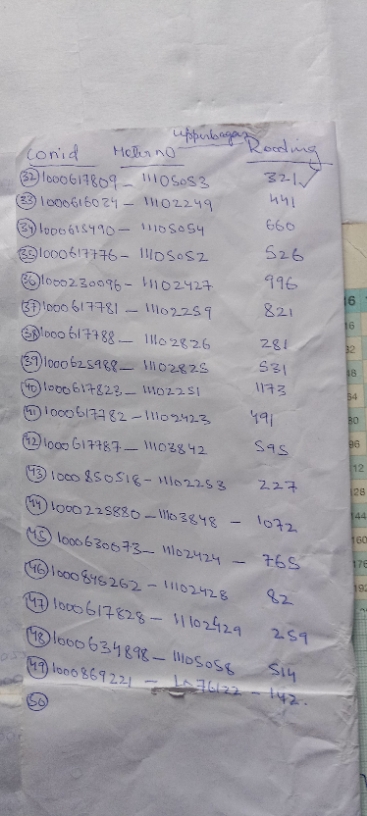 Upperbagar
Con id Meter no Reading
32 1000617809 - 11105053 321 ✓
33 1000616024 - 11102249 441
34 1000615490 - 11105054 660
35 1000617776 - 11105052 526
36 1000230096 - 11102427 996
37 1000617781 - 11102259 821
38 1000617788 - 11102826 281
39 1000625988 - 11102825 531
40 1000617823 - 11102251 1173
41 1000617782 - 11102423 491
42 1000617787 - 11103842 595
43 1000850518 - 11102253 227
44 1000225880 - 11103848 - 1072
45 1000630073 - 11102424 - 765
46 1000848262 - 11102428 82
47 1000617828 - 11102429 259
48 1000634898 - 11105058 514
49 1000869221 - - 142.
50